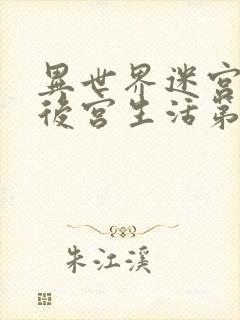 異世界迷宮
後宮生活第
朱江溪